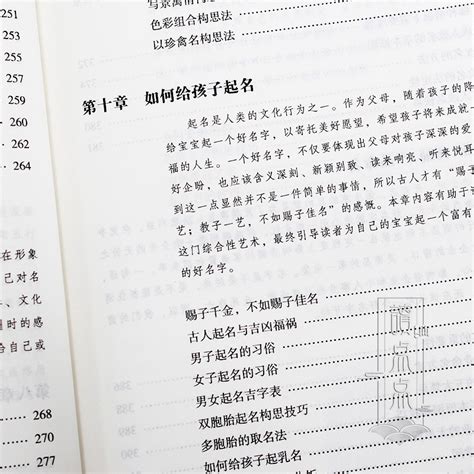 251
253
257
259
262
264
在形象
己对名
、文化
时的感
给自己或
268
270
277
写景寓情
色彩组合构思法
以珍禽名构思法
第十章 如何给孩子起名
起名是人类的文化行为之一。作为父母，随着孩子的降
给宝宝起一个好名字，以寄托美好愿望，希望孩子将来成就一
福的人生。一个好名字，不仅要体现出父母对孩子深深的爱
好企盼，也应该含义深刻、新颖别致、读来响亮、听来悦耳
到这一点显然并不是一件简单的事情，所以古人才有“赐子
艺；教子一艺，不如赐子佳名”的感慨。本章内容有助于
这门综合性艺术，最终引导读者为自己的宝宝起一个富有
的好名字。
赐子千金，不如赐子佳名
古人起名与吉凶福祸
男子起名的习俗
女子起名的习俗
男女起名吉字表
双胞胎起名构思技巧
多胞胎的取名法
如何给孩子起乳名
点点